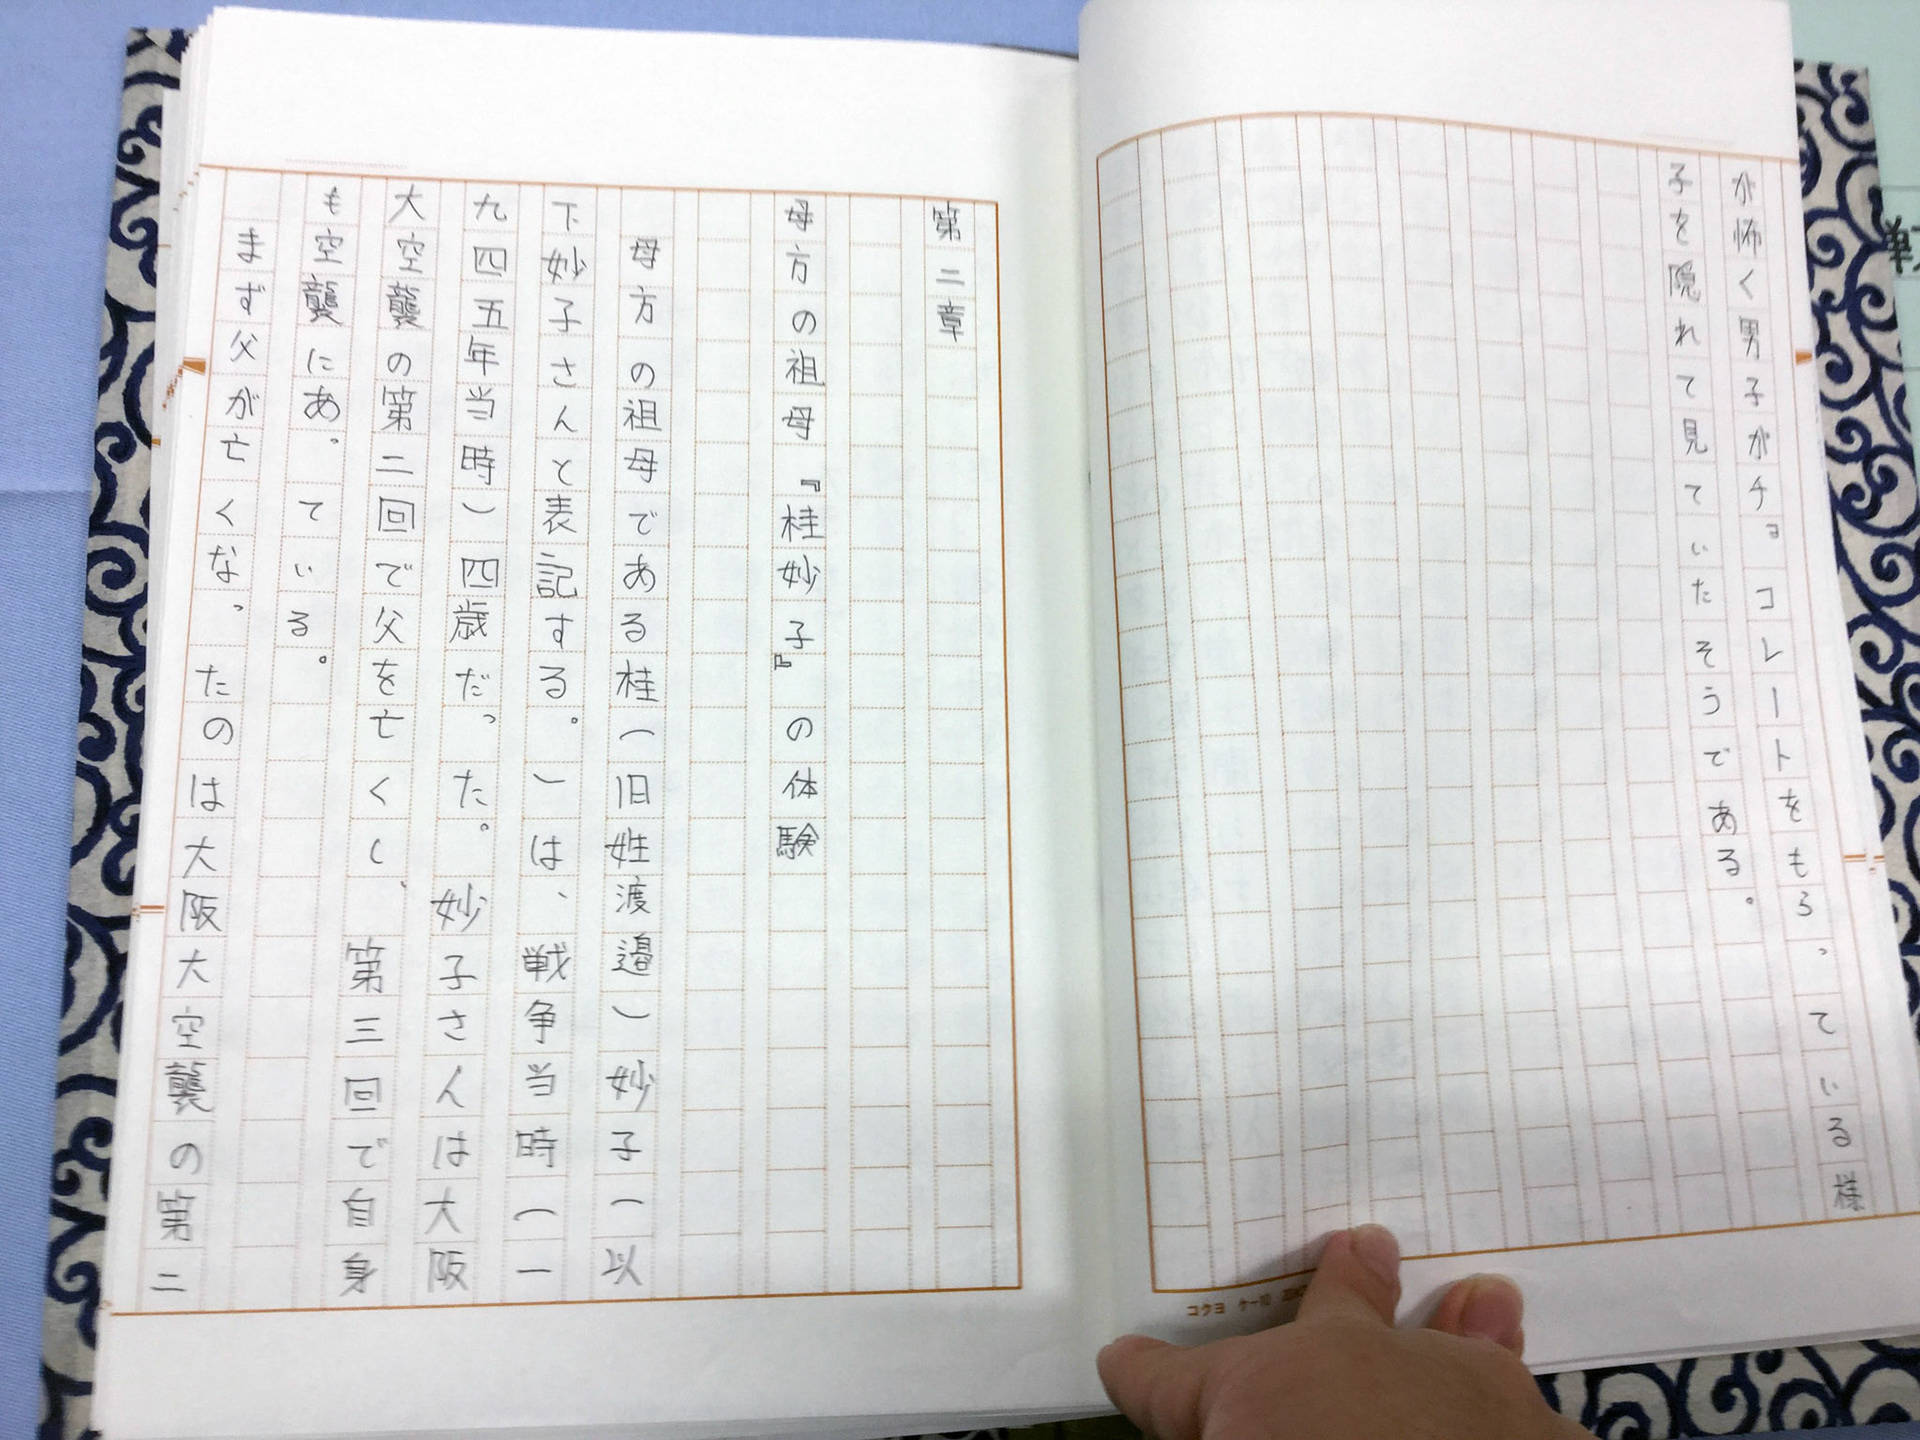 が怖く男子がチョコレートをもらっている様
子を隠れて見ていたそうである。
第二章
母方の祖母『桂妙子』の体験
母方の祖母である桂(旧姓渡邉)妙子(以
下妙子さんと表記する。)は、戦争当時(一
九四五年当時)四歳だった。妙子さんは大阪
大空襲の第二回で父を亡くし、第三回で自身
も空襲にあっている。
まず父が亡くなったのは大阪大空襲の第二
コクヨ ケー10